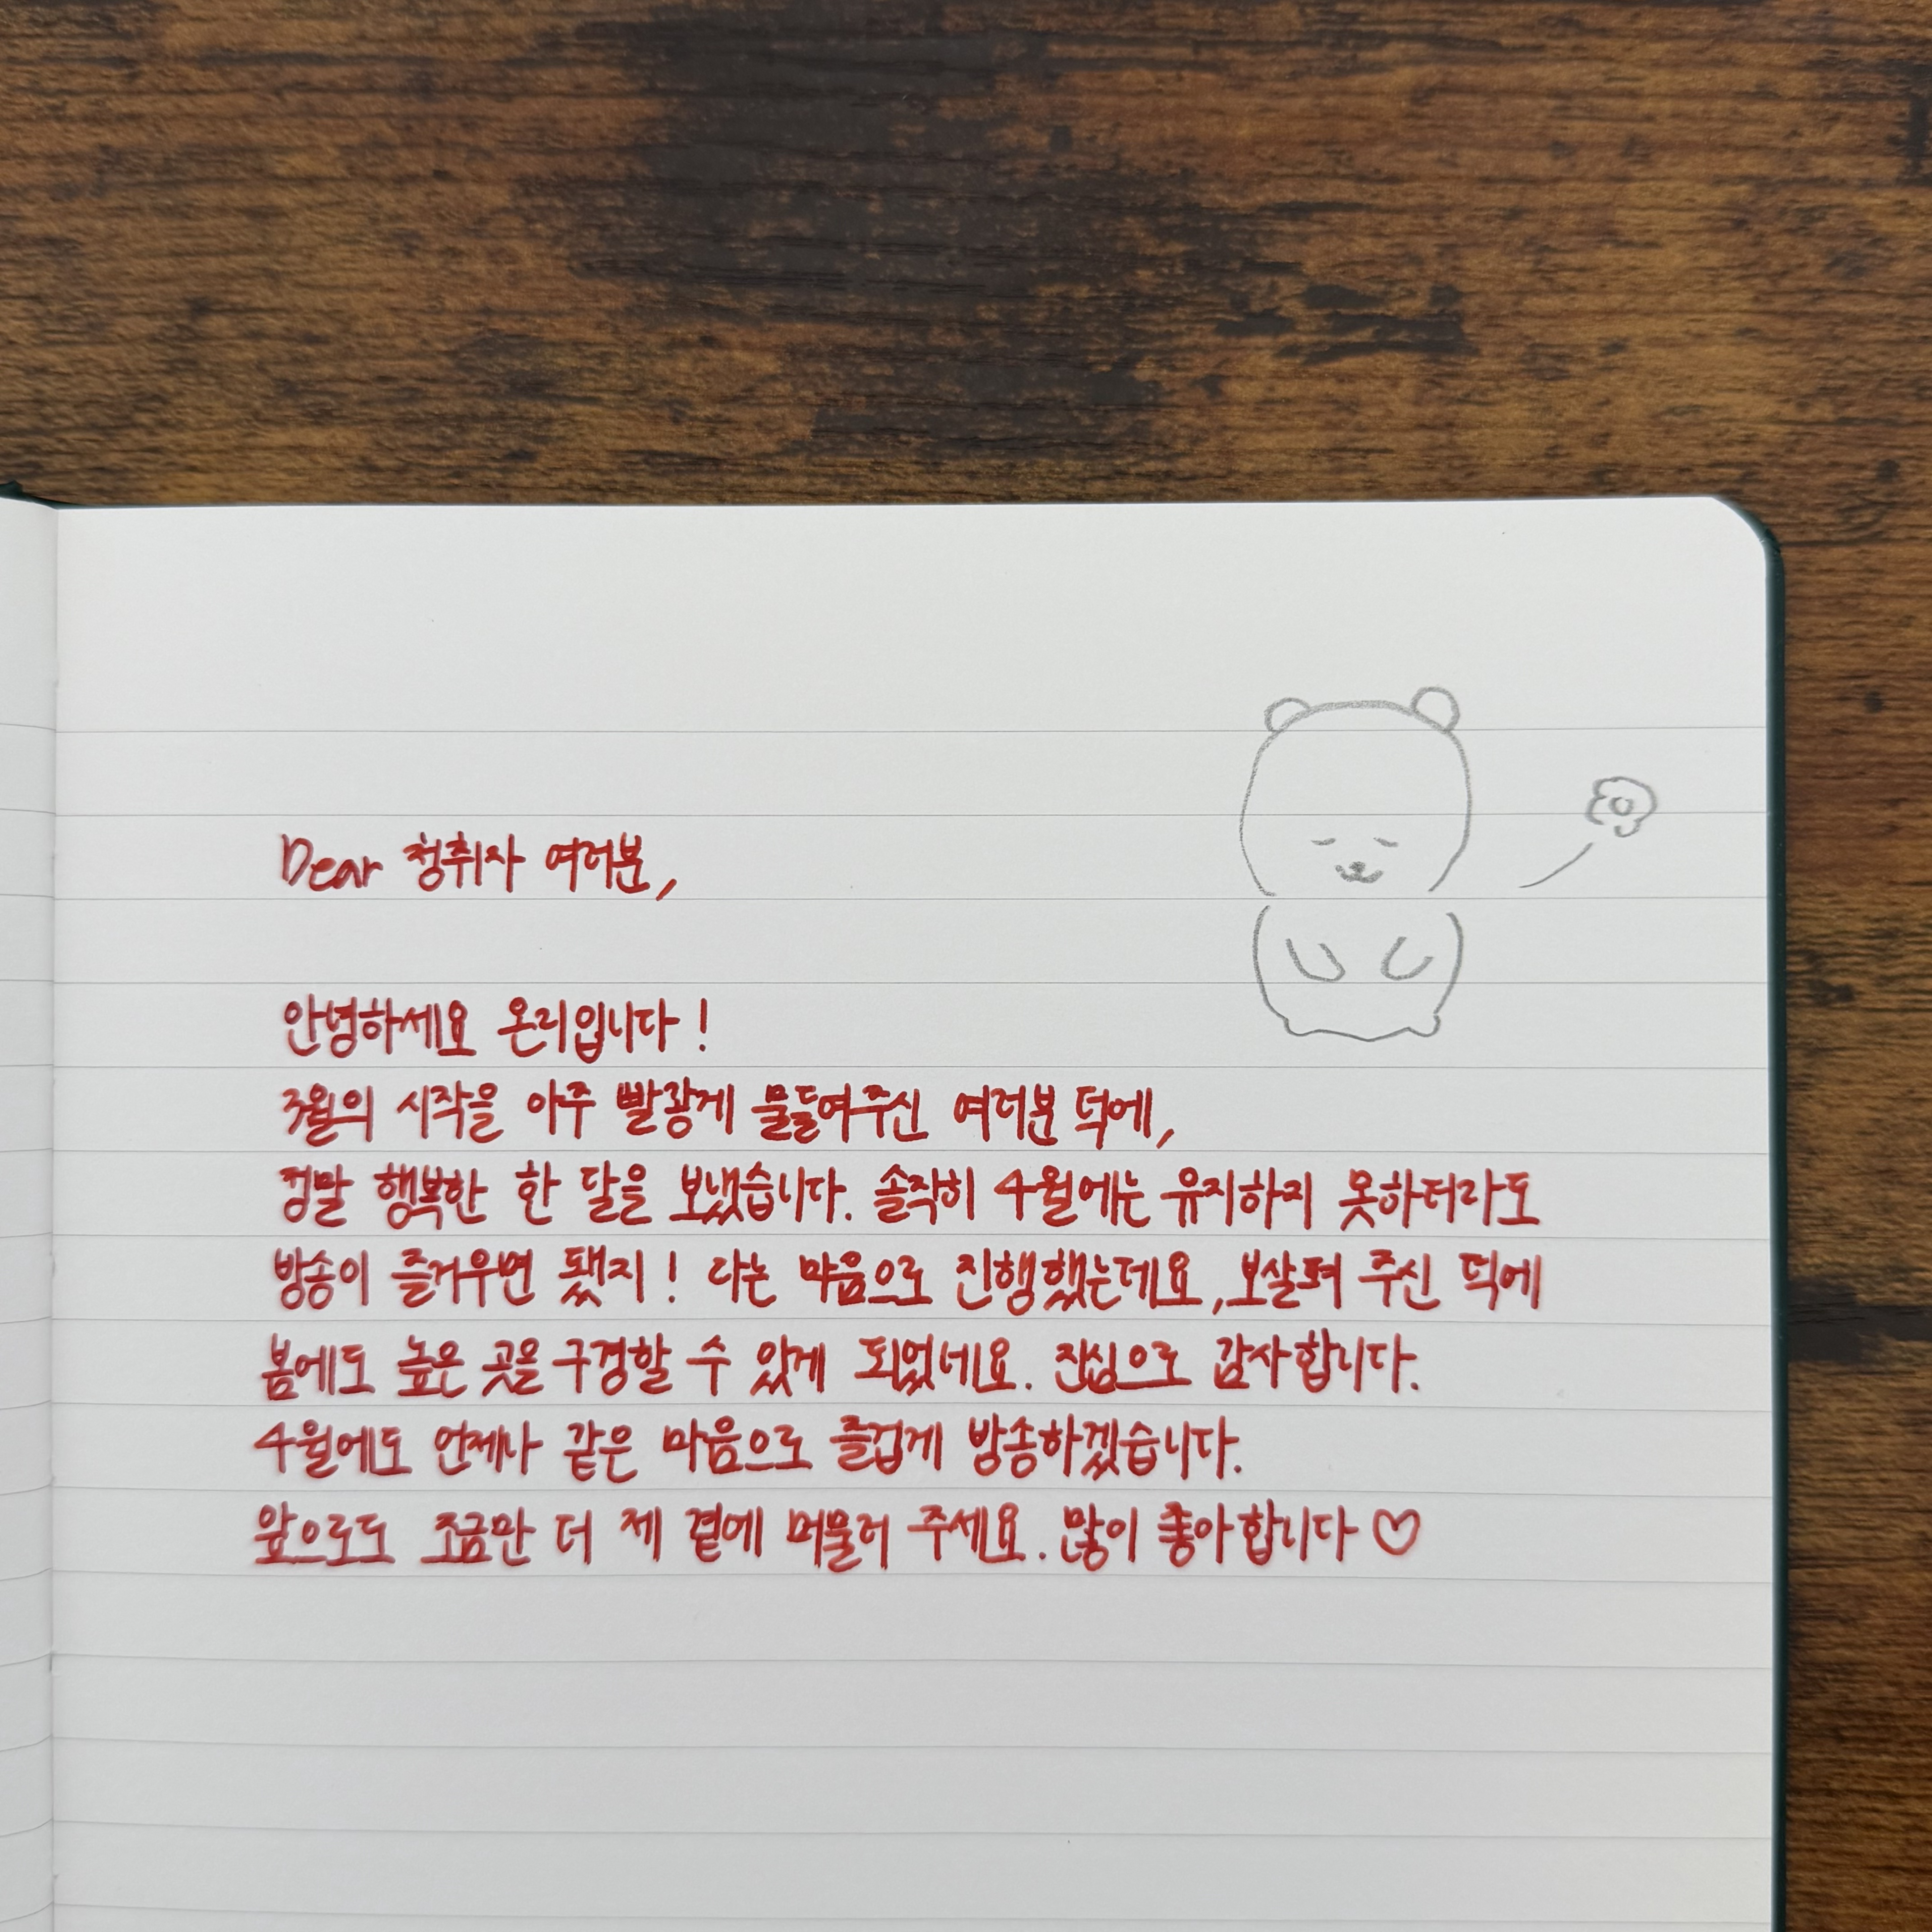 Dear 청취자 여러분,
안녕하세요 온리입니다!
3월의 시작을 아주 빨갛게 물들여주신 여러분 덕에,
정말 행복한 한 달을 보냈습니다. 솔직히 4월에는 유지하지 못하더라도
방송이 즐거우면 됐지! 라는 마음으로 진행했는데요, 보살펴 주신 덕에
봄에도 높은 곳을 구경할 수 있게 되었네요. 진심으로 감사합니다.
4월에도 언제나 같은 마음으로 즐겁게 방송하겠습니다.
앞으로도 조금만 더 제 곁에 머물러 주세요. 많이 좋아합니다♡